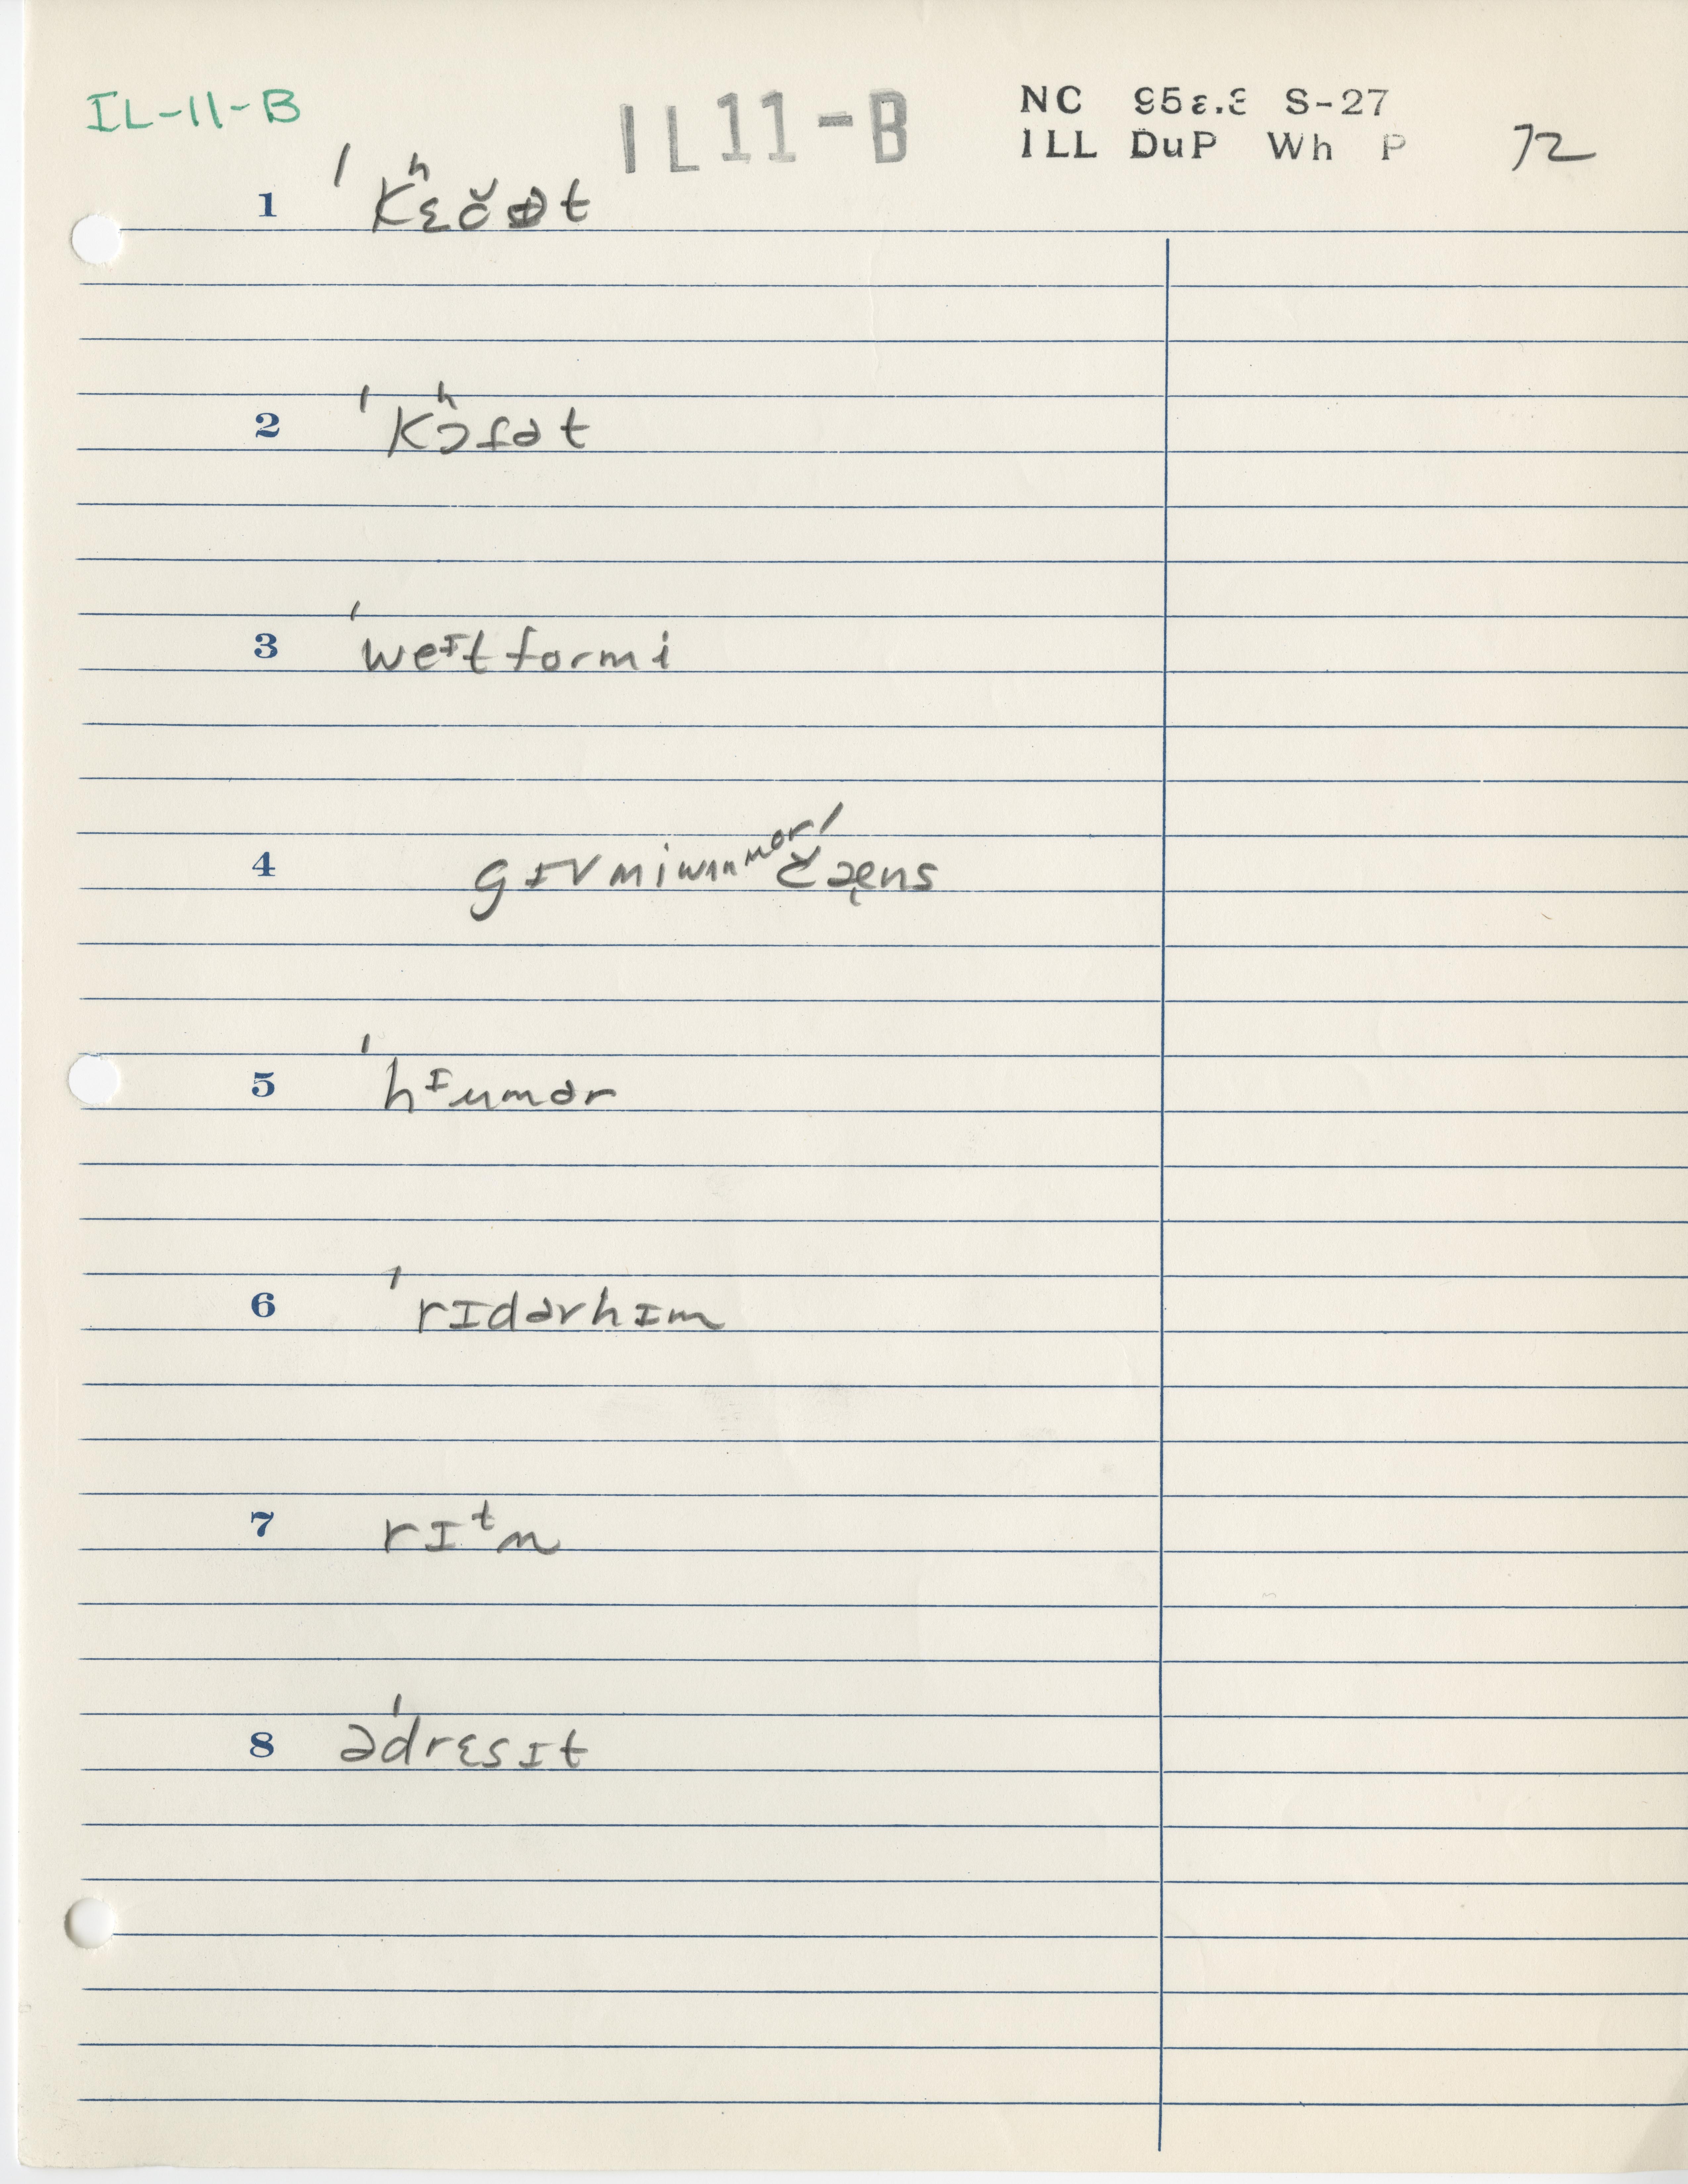 IL-11-B
IL11-B
NC 95ε.3 S-27
ILL DuP Wh P
72
1 ˈkʰɛčət
2 ˈkʰɔfət
3 ˈweᶦtformi
4 gɪvmiwʌnmorˈčæ̨ns
5 ˈhᶦumər
6 ˈrɪdərhɪm
7 rɪᵗn
8 əˈdrɛsɪt